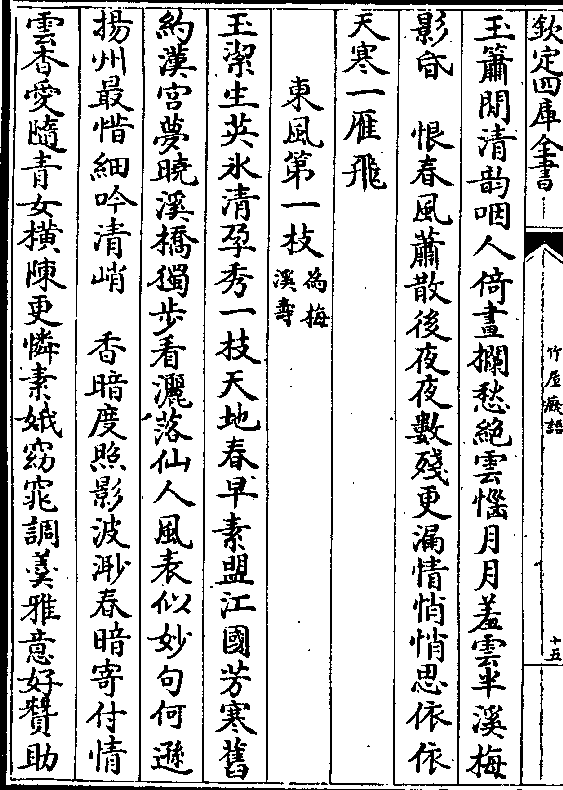 欽定四庫全書
竹屋癡語
十五
玉簫閒清韵咽人倚畫攔愁絶雲惱月月羞雲半溪梅
影昏　恨春風蕭散後夜夜數殘更漏情悄悄思依依
天寒一雁飛
東風第一枝為梅溪壽
玉潔生英氷清孕秀一枝天地春早素盟江國芳寒舊
約漢宮夢曉溪橋獨步看灑落仙人風表似妙句何遜
揚州最惜細吟清峭　香暗度照影波渺春暗寄付情
雲杳愛隨青女橫陳更憐素娥窈窕調羮雅意好贊助